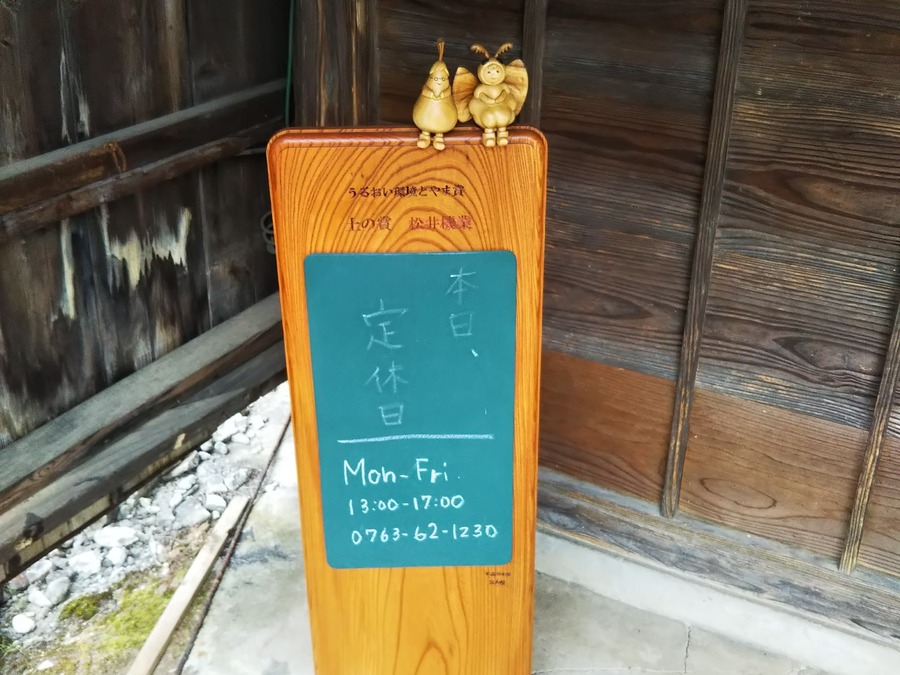 うるおい環境とやま賞
土の賞　松井機業
本日、
定休日
Mon-Fri.
13:00-17:00
0763-62-1230